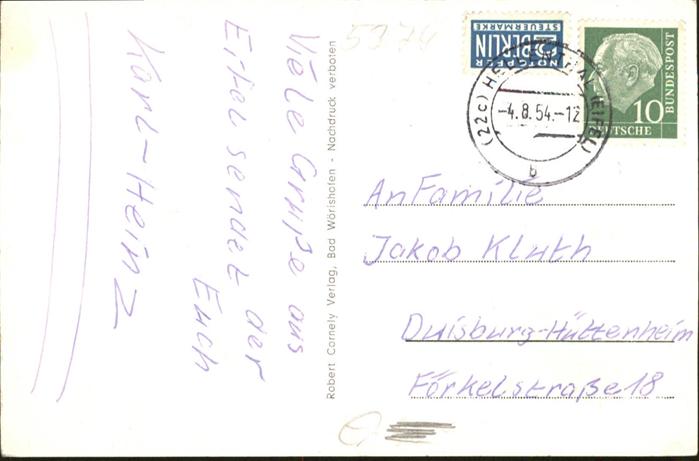 Viele Grüße aus
Eifel sendet der
Euch
Karl-Heinz
Robert Cornely Verlag, Bad Wörishofen - Nachdruck verboten
5974
NOTOPFER
2 BERLIN
STEUERMARKE
10
DEUTSCHE
BUNDESPOST
(22c) (EIFEL)
-4.8.54.-12
b
An Familie
Jakob Kluth
Duisburg-Hüttenheim
Förkelstraße 18